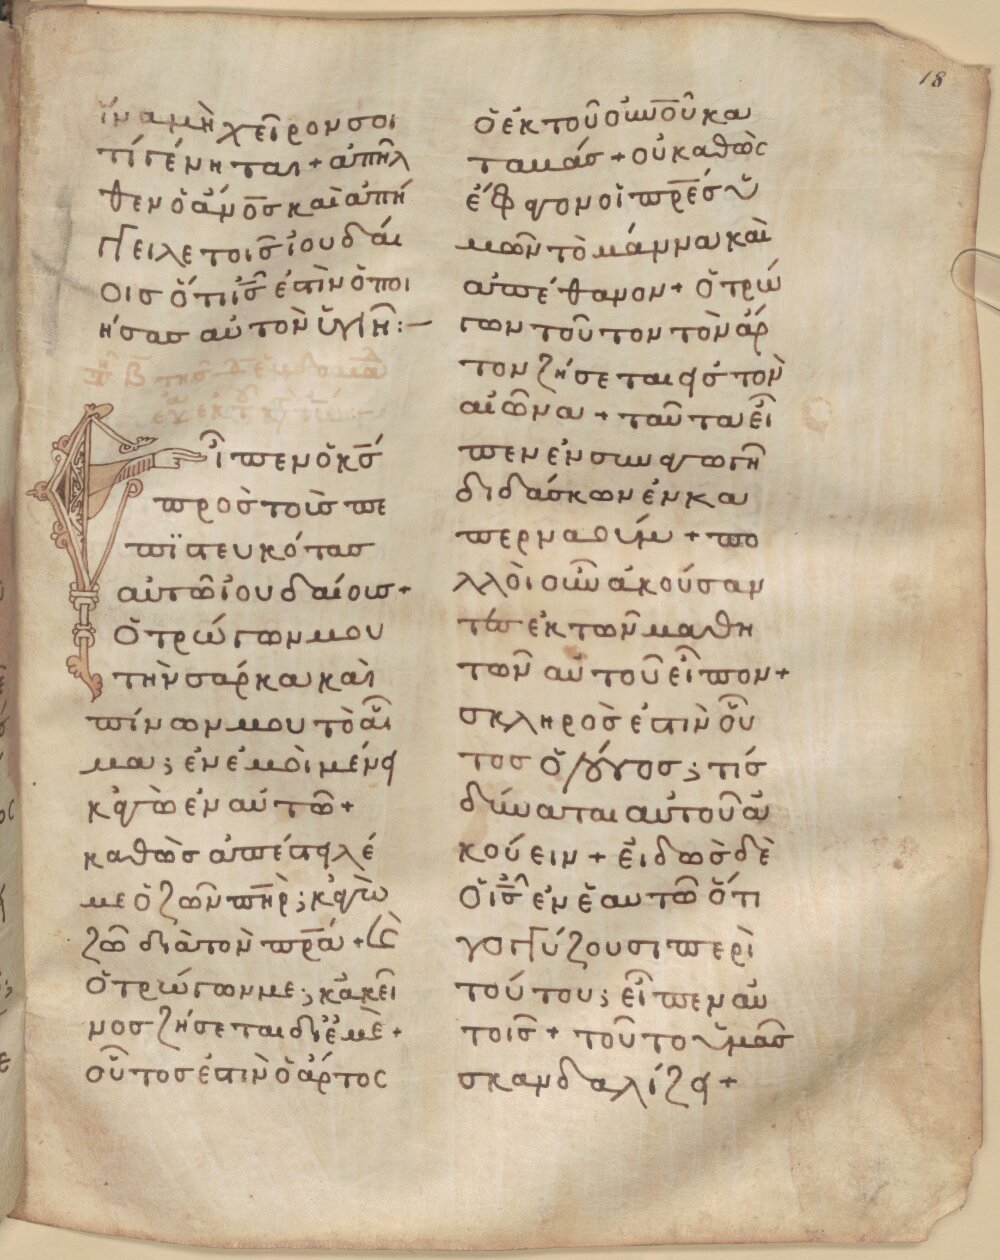 18
ἵνα μὴ χεῖρον σοι
τί γένηται + ἀπῆλ
θεν ὁ ἄνο̅σ καὶ ἀπή
γγειλε τοισ ἰουδαί
οισ ὅτι ι̅σ̅ ἐστὶν ὁ ποι
ήσασ αὐτὸν ὑγιῆ:—
ἶπεν ὁ κ̅σ̅
πρὸσ τοὺσ πε
πιστευκότασ
αὐτῶ ἰουδαίουσ +
Ὁ τρώγων μου
τὴν σάρκα καὶ
πίνων μου τὸ αἷ
μα; ἐν ἐμοὶ μένει
κἀγὼ ἐν αὐτῶ +
καθὼσ ἀπέστειλέ
με ὁ ζῶν π̅η̅ρ̅; κἀγὼ
ζῶ διὰ τὸν π̅ρ̅α̅ + καὶ
ὁ τρώγων με; κἀκεῖ
νοσ ζήσεται δι ἐμὲ +
οὗτοσ ἐστὶν ὁ ἄρτοσ
ὁ ἐκ τοῦ ο̅υ̅ν̅ο̅υ̅ κα
ταβάσ + οὐ καθὼσ
ἔφαγον οἱ π̅ρ̅ε̅σ̅ ὑ
μῶν τὸ μάννα καὶ
ἀπέθανον + ὁ τρώ
γων τοῦτον τὸν ἄρ
τον ζήσεται εἰσ τὸν
αἰῶνα + ταῦτα εἶ
πεν ἐν συναγωγῆ
διδάσκων ἐν κα
περναούμ + πο
λλοὶ οὖν ἀκούσαν
τεσ ἐκ τῶν μαθη
τῶν αὐτοῦ εἶπον +
σκληρὸσ ἐστὶν οὗ
τοσ ὁ λόγοσ; τίσ
δύναται αὐτοῦ ἀ
κούειν + εἰδὼσ δὲ
ὁ ι̅σ̅ ἐν ἑαυτῶ ὅτι
γογγύζουσι περὶ
τούτου; εἶπεν αὐ
τοισ + τοῦτο ὑμᾶσ
σκανδαλίζει +